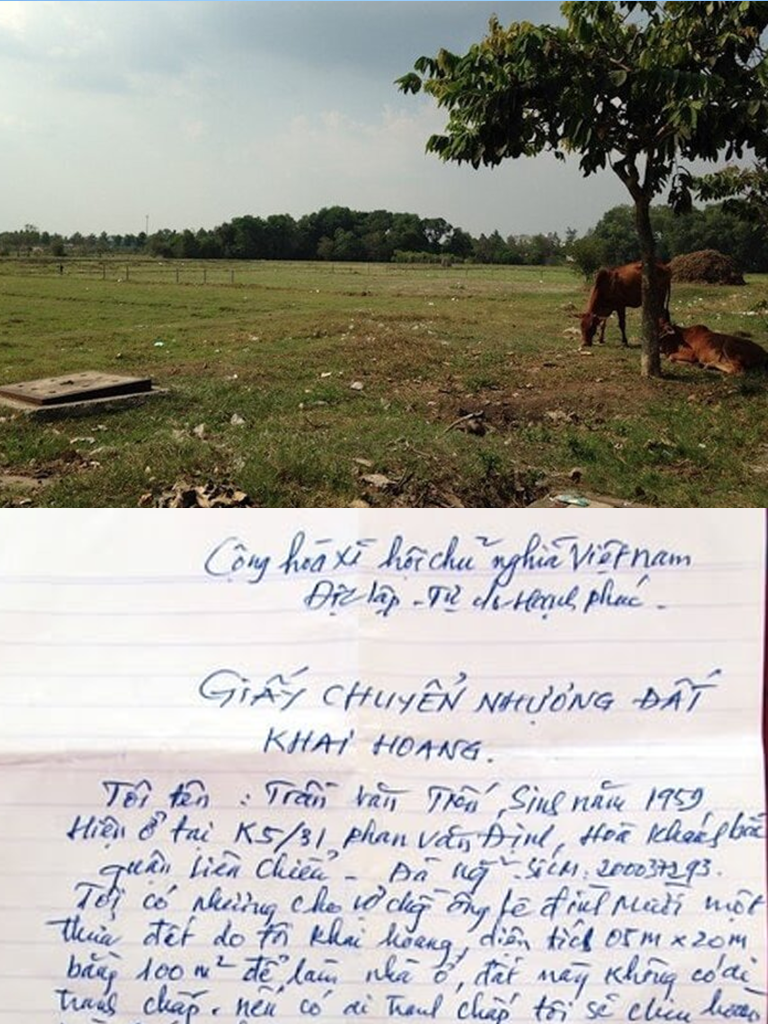 Cộng hoà xã hội chủ nghĩa Việt nam
Độc lập - Tự do Hạnh phúc.
GIẤY CHUYỂN NHƯỢNG ĐẤT
KHAI HOANG.
Tôi tên : Trần văn Tiến, Sinh năm 1959
Hiện ở tại K5/31, phan văn Định, Hoà Khánh bắc
quận Liên Chiểu - Đà nẵng. SCM: 200037293.
Tôi có nhường cho vợ chồng ông lê đình Mười một
thửa đất do tôi khai hoang, diện tích 05m x 20m
bằng 100m² để làm nhà ở, đất này không có ai
tranh chấp. nếu có ai tranh chấp tôi sẽ chịu hoàn